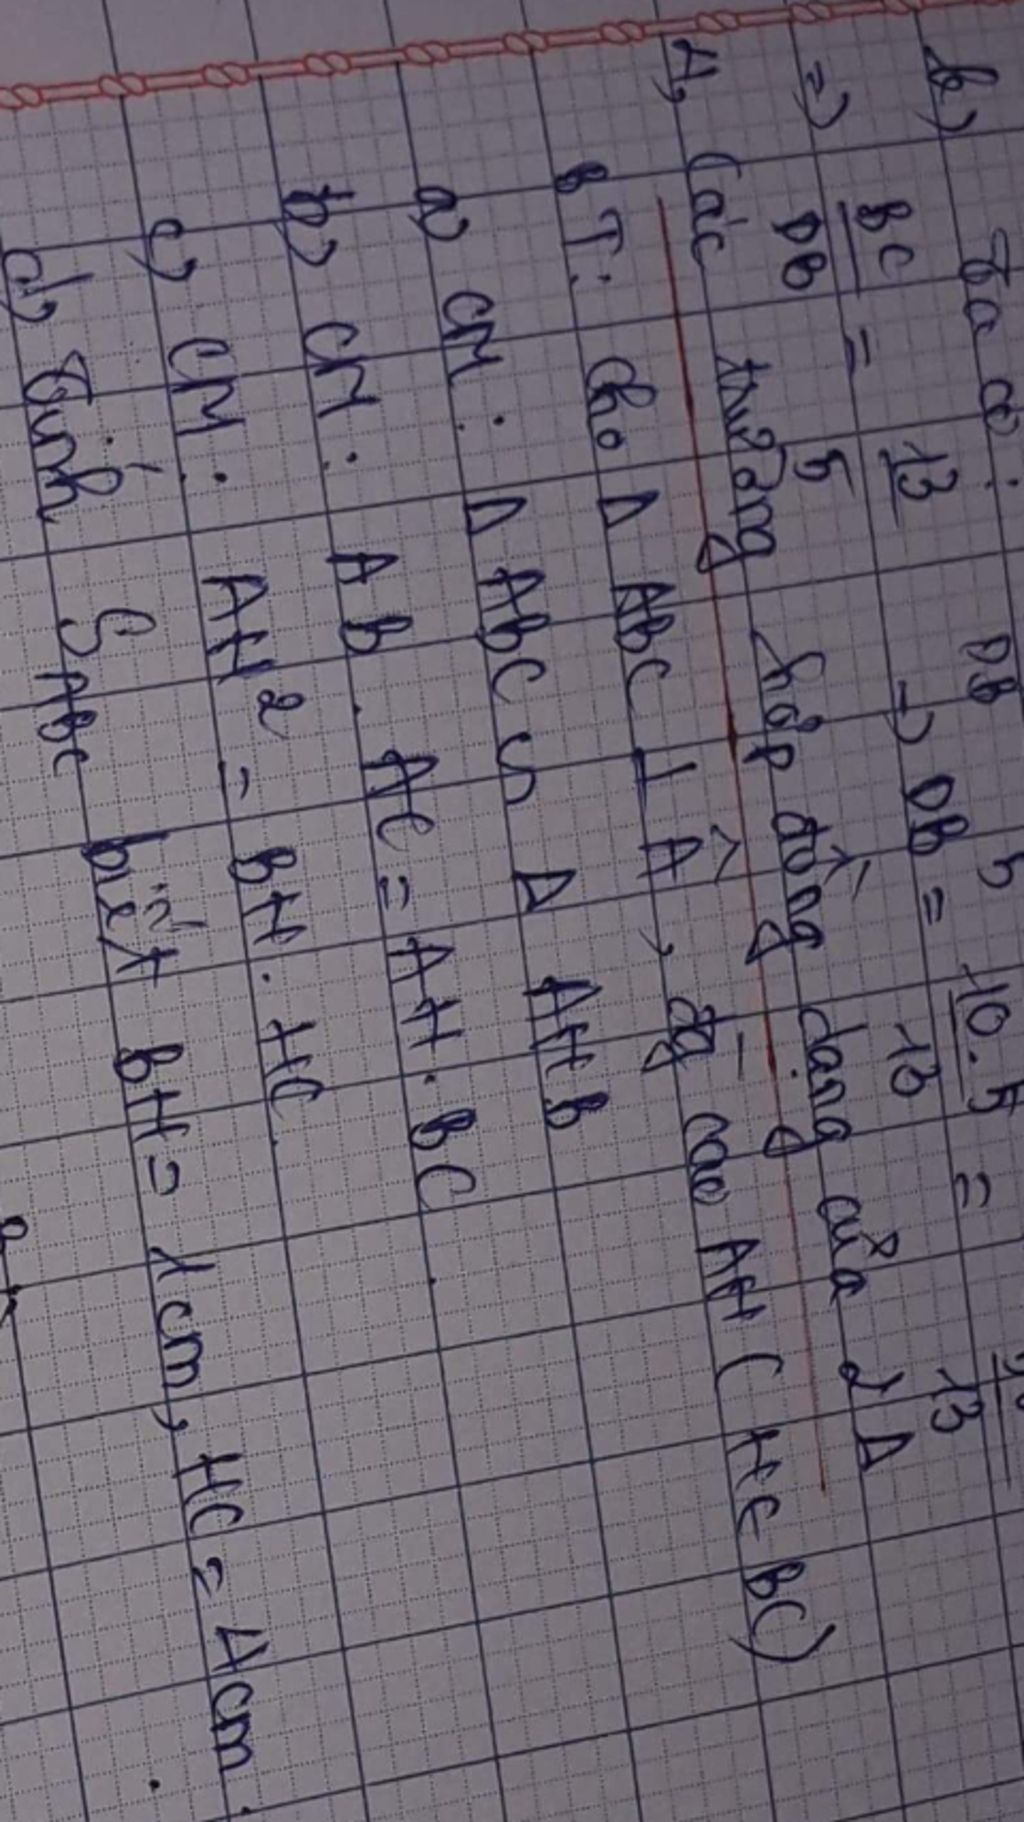 b) Ta có:
DB 5
=) BC/DB = 13/5 => DB = 10.5/13 =
13
4, Các trường hợp đồng dạng của 2 Δ
BT: Cho Δ ABC ⊥ Â, đg cao AH ( H ∈ BC)
a) CM: Δ ABC ᔕ Δ AHB
b) CM: AB. AC = AH. BC.
c) CM: AH² = BH. HC.
d) Tính S ABC biết BH = 1cm, HC = 4cm.